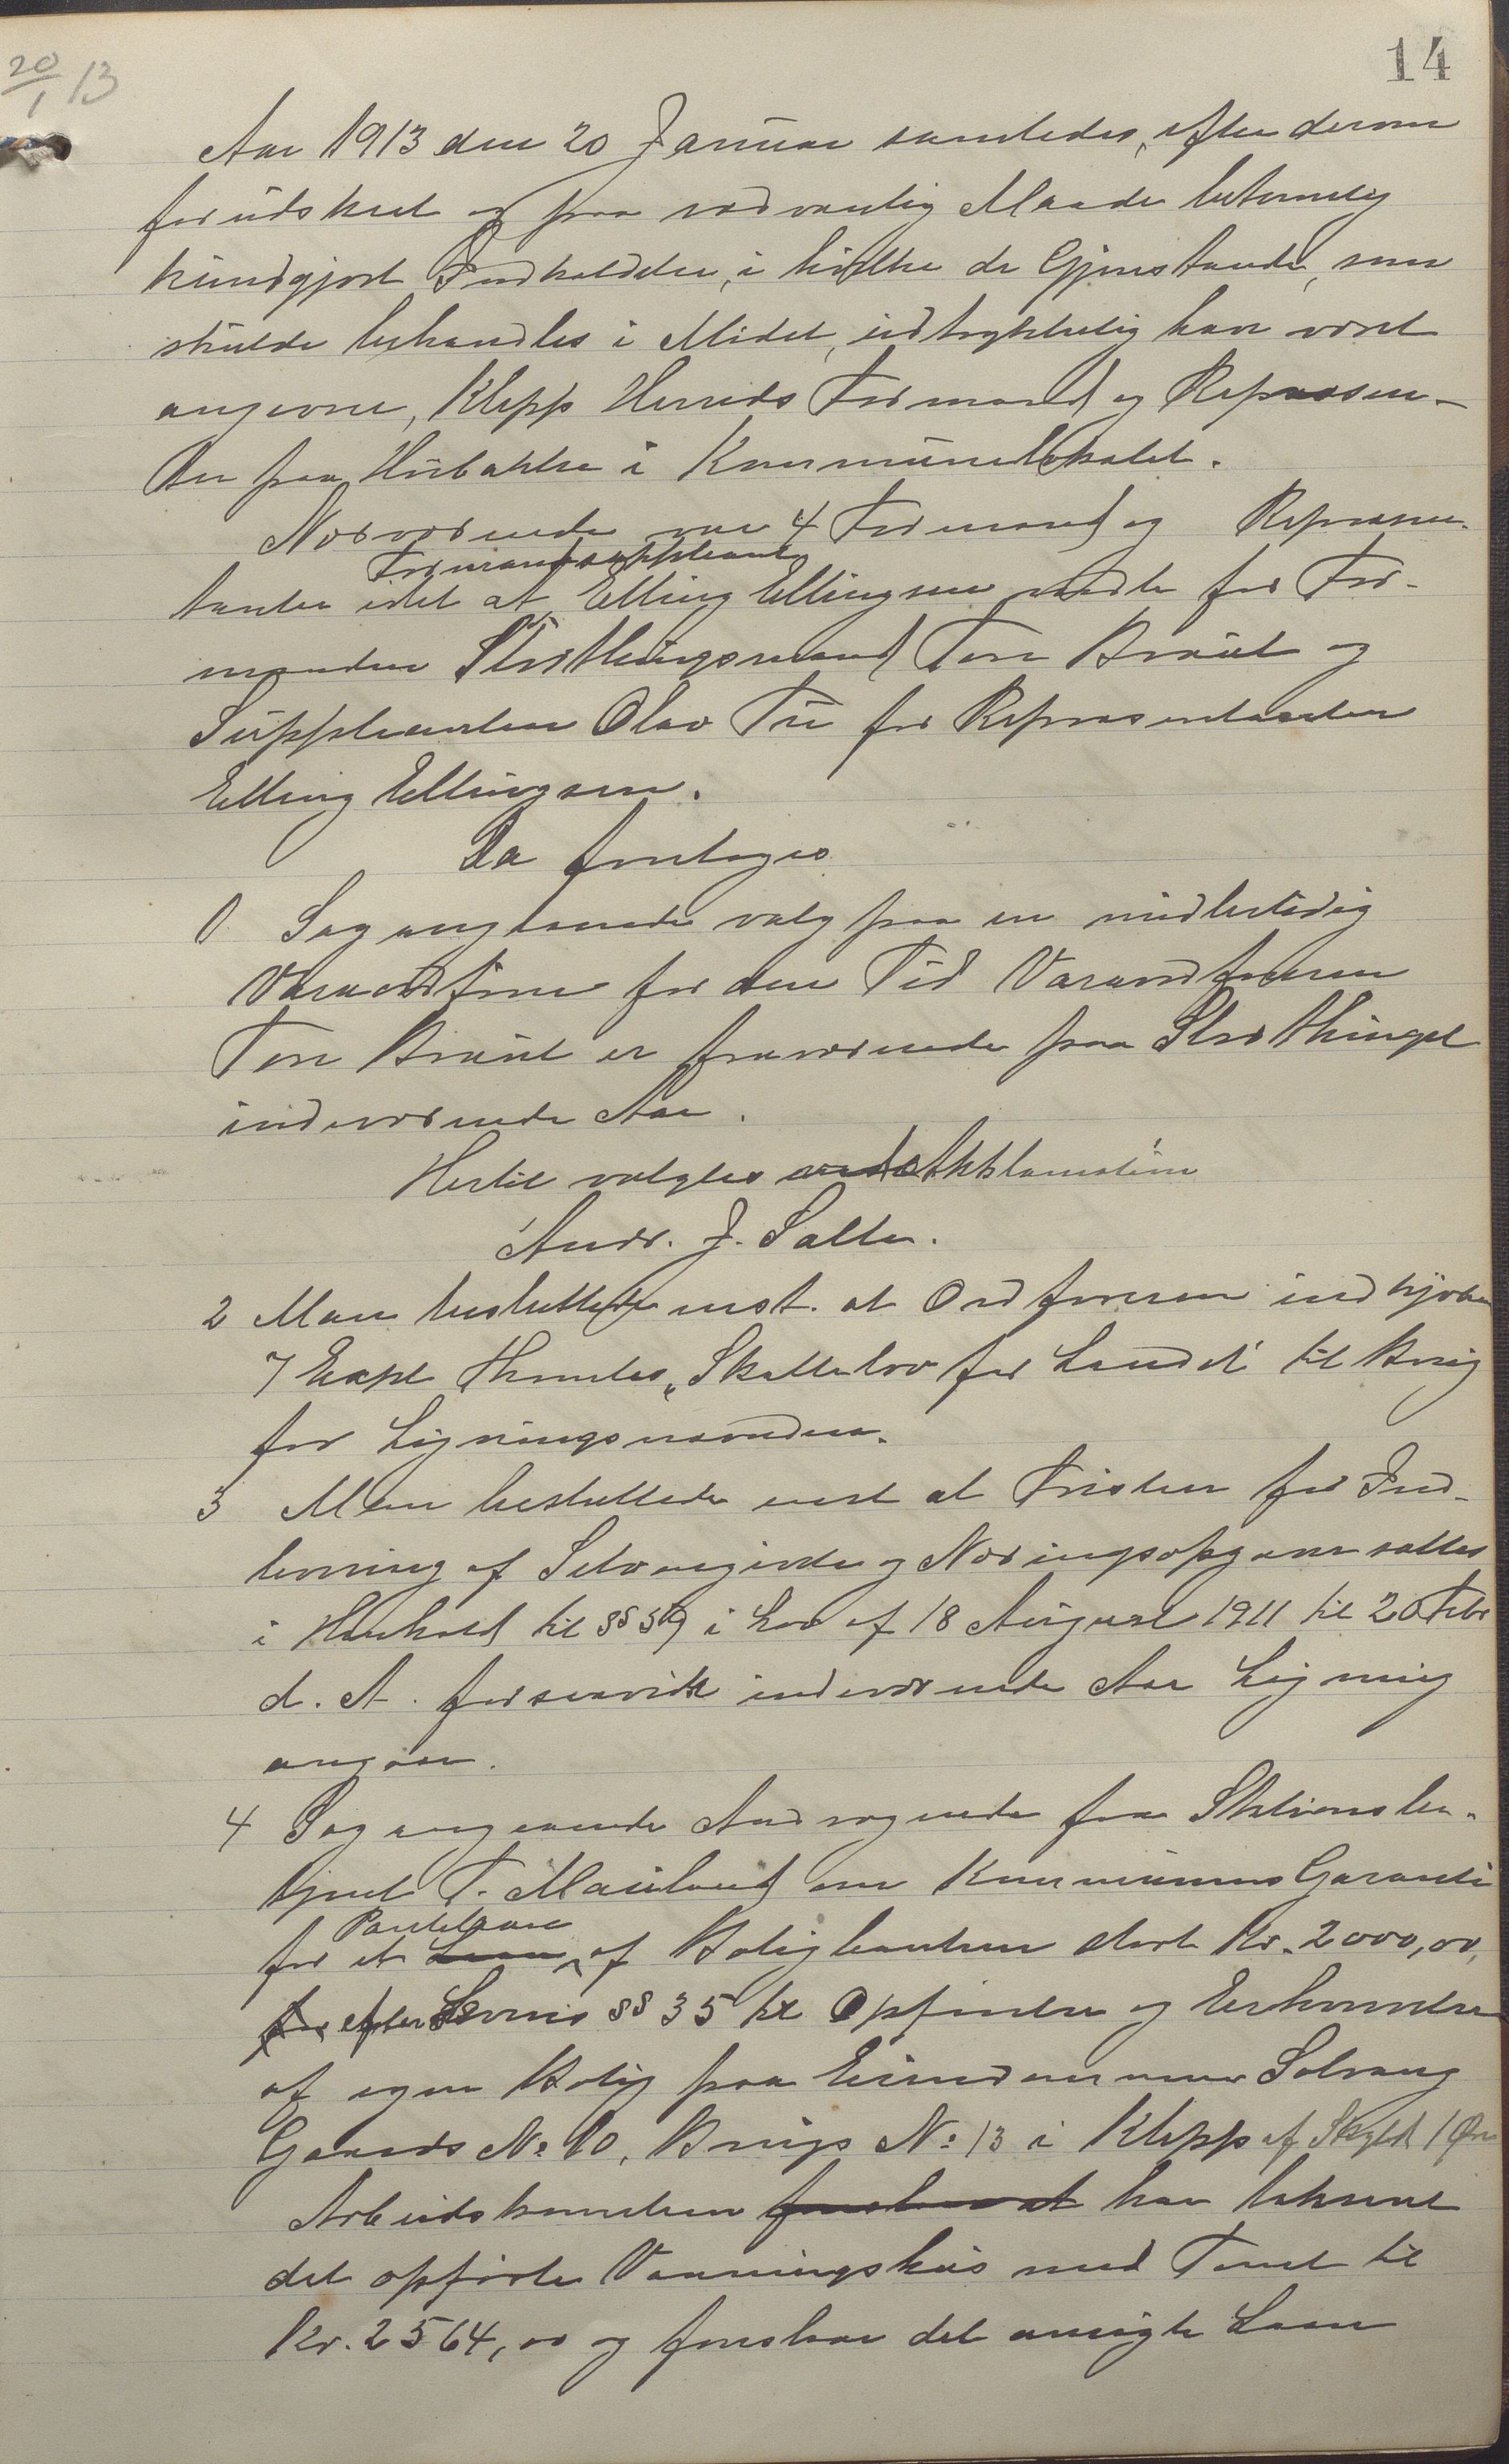 14
20/1 13
Aar 1913 den 20 Januar samledes, efter derom
forudskeet og paa sædvanlig Maade betimelig
kundgjort Indkaldelse, i hvilke de Gjenstande, som
skulde behandles i Mødet, udtrykkelig have været
angivne, Klepp Herreds Formænd og Repræsen-
ter paa Hørbakke i Kommunelokalet.
Nærværende var 4 Formænd og Repræsen-
Formandsuppleant
tanter idet at Elling Ellingsen mødte for For-
manden Storthingsmand Tore Braut og
Suppleanten Olav Tu for Repræsentanten
Elling Ellingsen.
Da foretoges
1 Sag angaaende valg paa en midlertidig
Varaordfører for den Tid Varaordføreren
Tore Braut er fraværende paa Storthinget
indeværende Aar.
Hertil valgtes ved Akklamation
Andr. J. Salte.
2 Man besluttede enst. at Ordføreren indkjøber
7 Expl Thomles „Skattelov for Landet" til Brug
for Ligningsnævnden.
3 Man besluttede enst at Fristen for Ind-
levering af Selvangivelse og Næringsopgaver sættes
i Henhold til §§ 59 i Lov af 18 August 1911 til 20 Febr
d. A. forsaavidt indeværende Aar Ligning
angaar.
4 Sag angaaende Andragende fra Stationsbe-
tjent T. Mauland om Kommunens Garanti
Pantelaan
for et Laan af Boligbanken stort Kr. 2000,00,
for efter Lovens §§ 35 til Opførelse og Erhvervelse
af egen Bolig paa Eiendommen Solvang
Gaards No 10, Brugs No 13 i Klepp af Skyld 1 Øre
Arbeidskomiteen foreslaar at har takseret
det opførte Vaaningshus med Tomt til
Kr. 2564,00 og foreslaar det ansøgte Laan